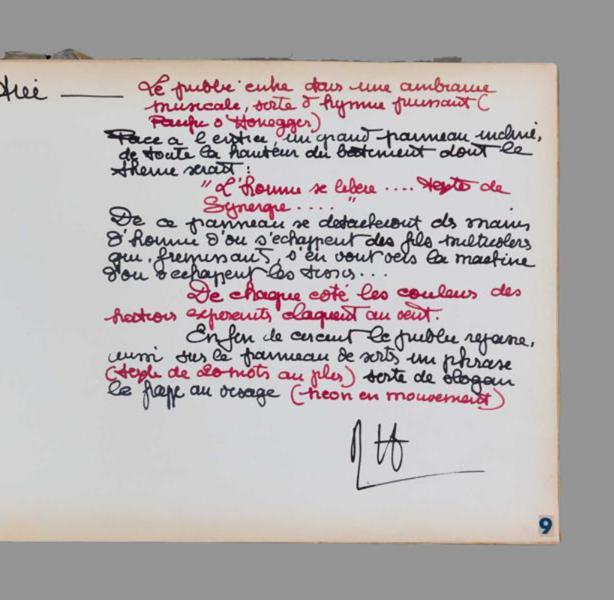 Le public entre dans une ambiance
musicale, sorte d'hymne puissant (
d'Honegger)
Face a l'entrée un grand panneau incliné,
de toute la hauteur du batiment dont le
theme serait :
"L'homme se libere .... texte de
Synergie ...."
De ce panneau se detacheront ds mains
d'homme d'ou s'echappent des fils multicolores
qui, fremissants, s'en vont vers la machine
d'ou s'echapent les
De chaque coté les couleurs des
nations exposants claquent au vent.
En fin de circuit le public repasse,
aussi sur le panneau de sortie un phrase
(texte de 20 mots au plus) sorte de slogan
le frappe au visage (neon en mouvement)
9